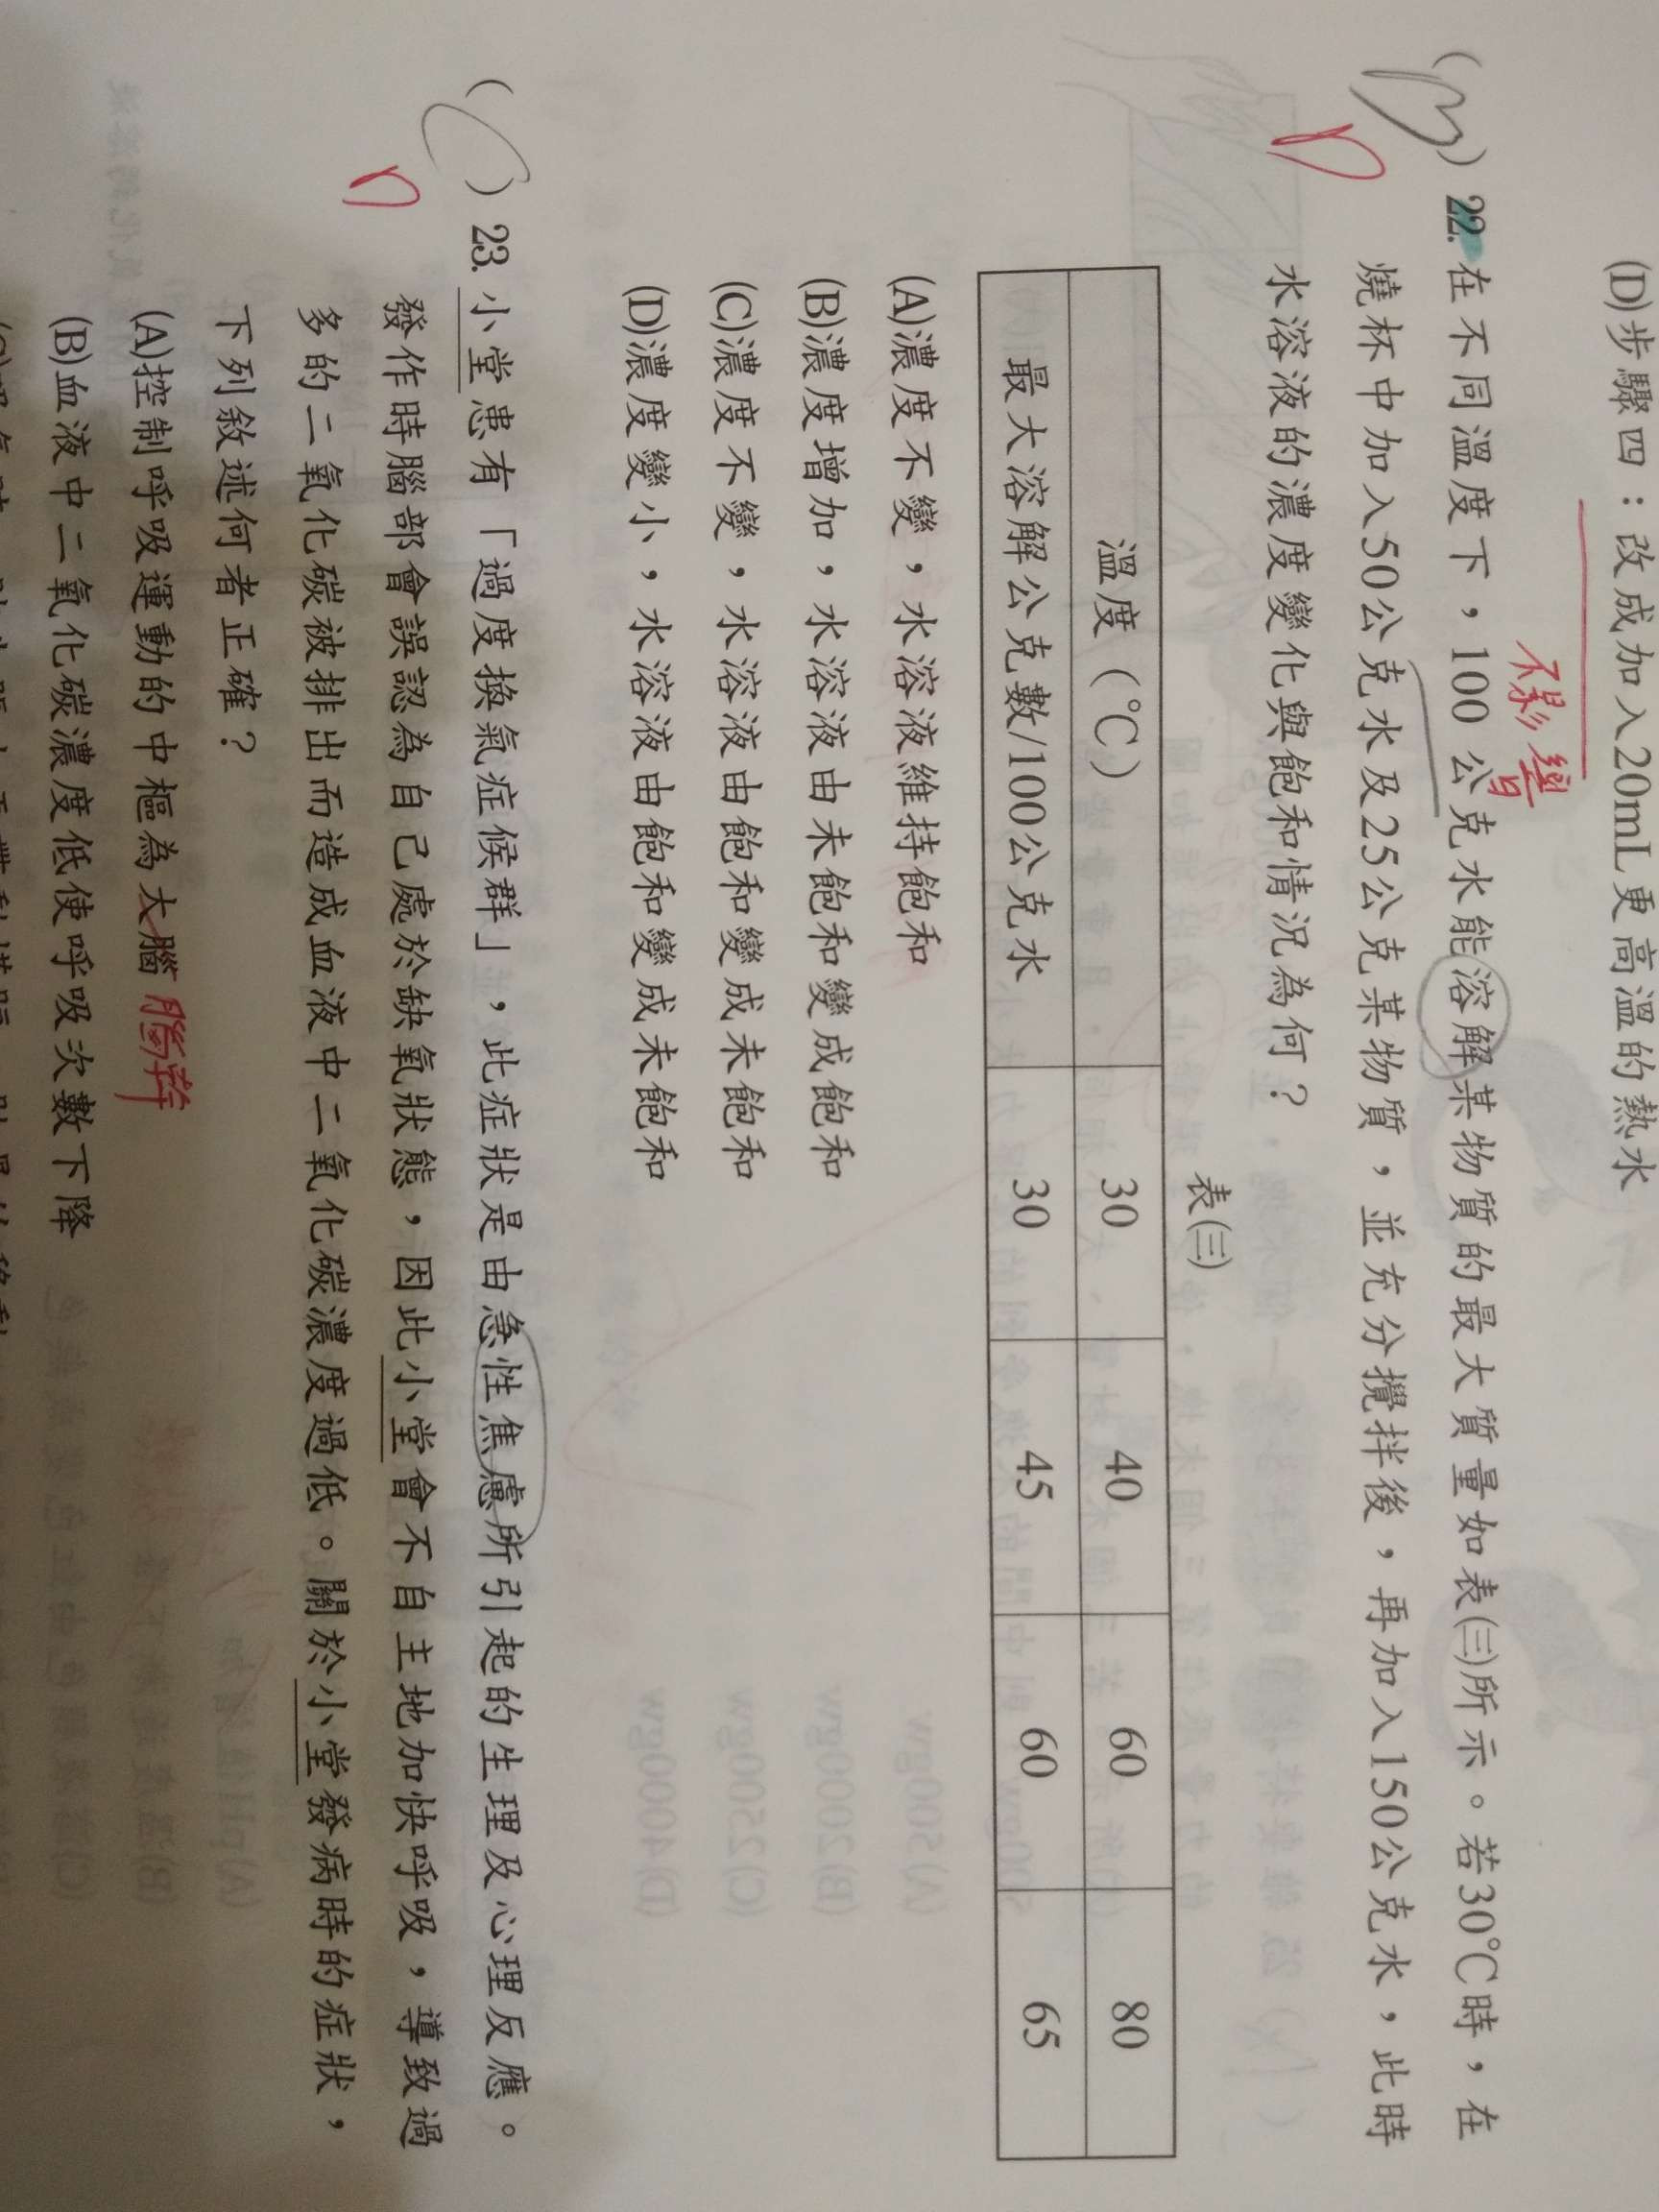 (D)步驟四：改成加入20mL更高溫的熱水
不影響
( ) 22. 在不同溫度下，100公克水能溶解某物質的最大質量如表(三)所示。若30℃時，在
D
燒杯中加入50公克水及25公克某物質，並充分攪拌後，再加入150公克水，此時
水溶液的濃度變化與飽和情況為何？
表(三)
溫度（℃） 30 40 60 80
最大溶解公克數/100公克水 30 45 60 65
(A)濃度不變，水溶液維持飽和
(B)濃度增加，水溶液由未飽和變成飽和
(C)濃度不變，水溶液由飽和變成未飽和
(D)濃度變小，水溶液由飽和變成未飽和
( ) 23. 小堂患有「過度換氣症候群」，此症狀是由急性焦慮所引起的生理及心理反應。
D
發作時腦部會誤認為自己處於缺氧狀態，因此小堂會不自主地加快呼吸，導致過
多的二氧化碳被排出而造成血液中二氧化碳濃度過低。關於小堂發病時的症狀，
下列敘述何者正確？
(A)控制呼吸運動的中樞為大腦 腦幹
(B)血液中二氧化碳濃度低使呼吸次數下降